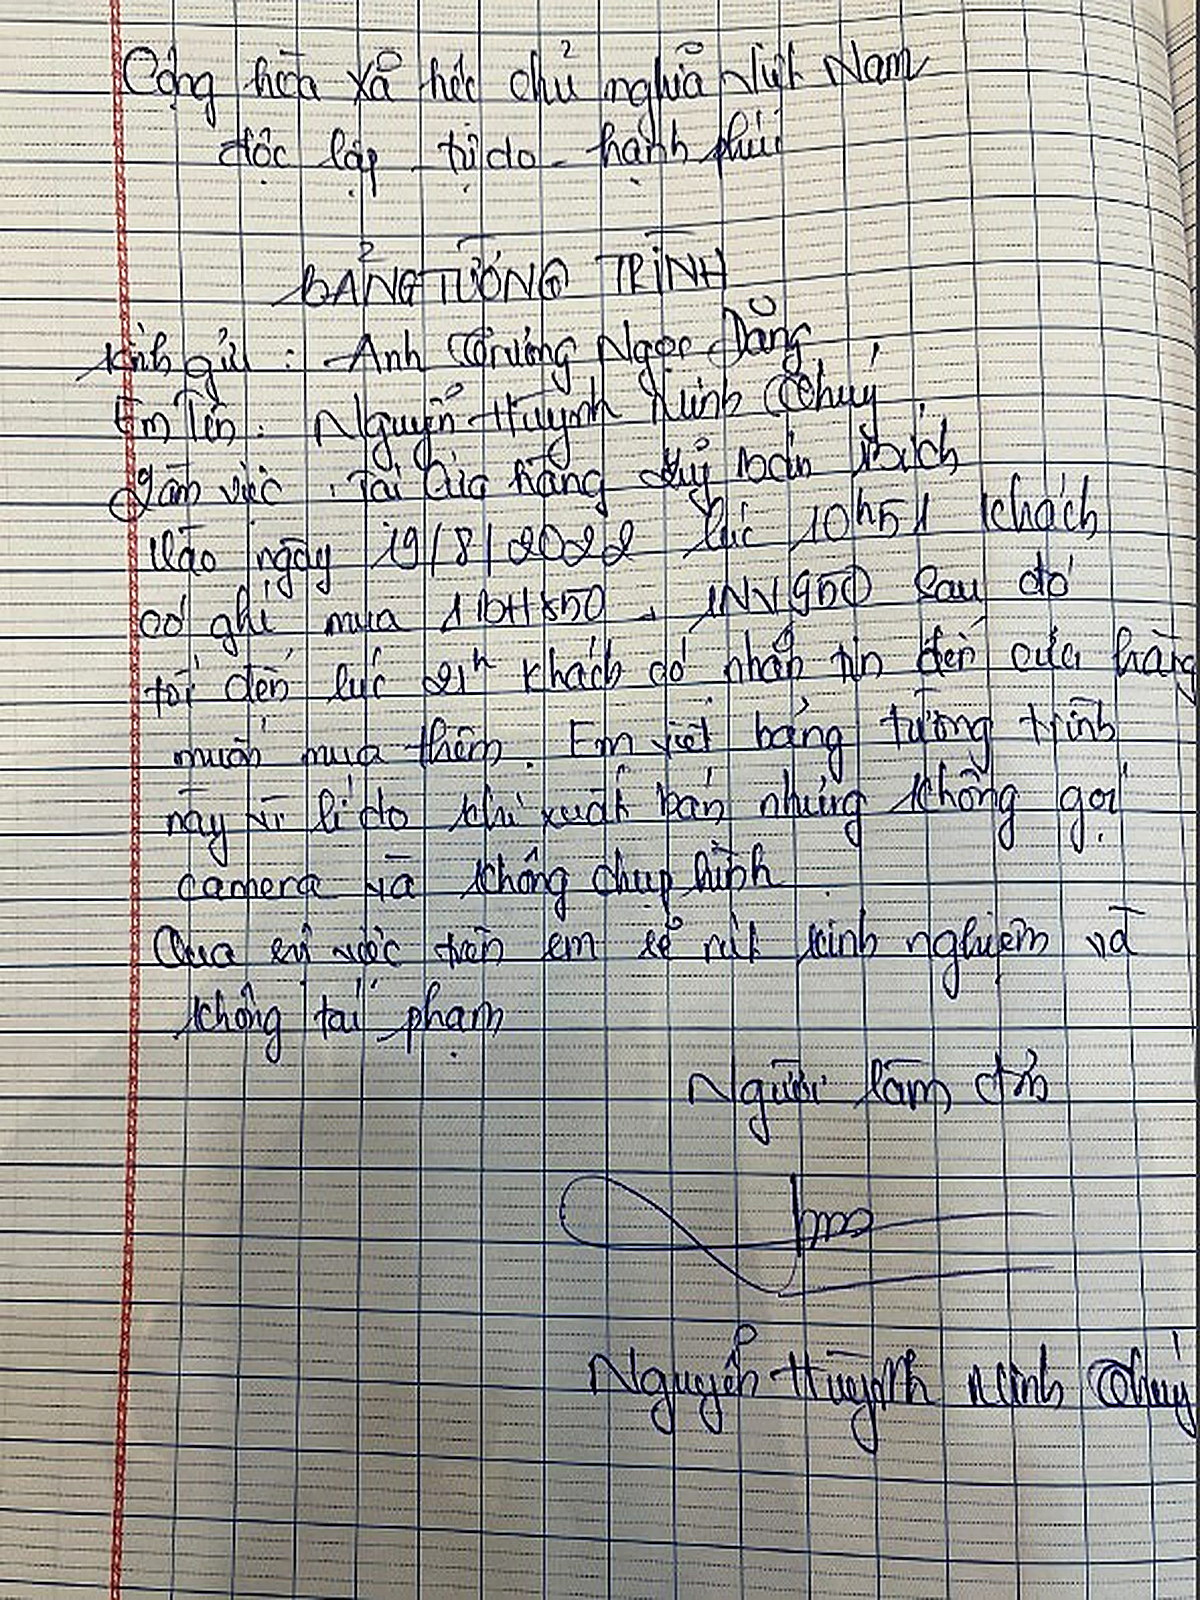 Cộng hòa xã hội chủ nghĩa Việt Nam
độc lập - tự do - hạnh phúc
BẢNG TƯỜNG TRÌNH
Kính gửi : Anh Trương Ngọc Đằng
Em Tên : Nguyễn Huỳnh Minh Thuý
Làm việc : Tại Cửa hàng Bích
Vào ngày 19/8/2022 lúc 10h51 khách
có ghé mua 1 BH850 , 1NV950 sau đó
tối đến lúc 21h khách có nhắn tin đến cửa hàng
muốn mua thêm. Em viết bảng tường trình
này vì lí do khi xuất bán nhưng không gọi
camera và không chụp hình .
Qua sự việc trên em sẽ rút kinh nghiệm và
không tái phạm
Người làm đơn
Nguyễn Huỳnh Minh Thuý